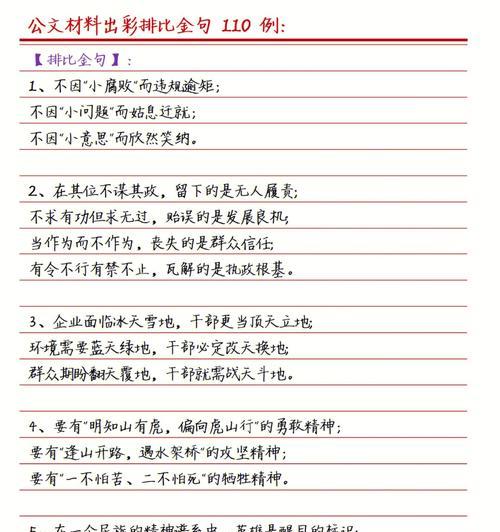 公文材料出彩排比金句 110 例:
【排比金句】:
1、不因"小腐败"而违规逾矩;
不因"小问题"而姑息迁就;
不因"小意思"而欣然笑纳。
2、在其位不谋其政，留下的是无人履责;
不求有功但求无过，贻误的是发展良机;
当作为而不作为，丧失的是群众信任;
有令不行有禁不止，瓦解的是执政根基。
3、企业面临冰天雪地，干部更当顶天立地;
环境需要蓝天绿地，干部必定改天换地;
群众期盼翻天覆地，干部就需战天斗地。
4、要有"明知山有虎，偏向虎山行"的勇敢精神;
要有"逢山开路，遇水架桥"的攻坚精神;
要有"一不怕苦、二不怕死"的牺牲精神。
5、在一个民族的精神谱系中，英雄是醒目的标识;